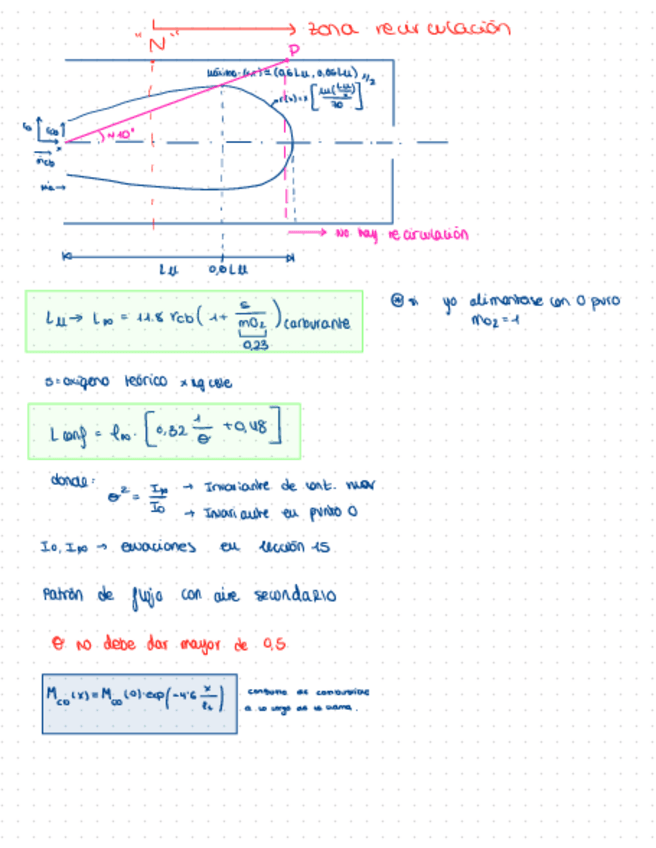 "N" → zona recirculación
P
máximo (x,r) = (0,6 Lll, 0,06 Lll)
r(x) = x [ ln(Lll/x) / 70 ] 1/2
r₀
r_cb
x
~10°
ṁcb
ṁa →
→ No hay recirculación
Lll 0,6 Lll
Lll → L∞ = 11.8 rcb ( 1 + s / mO₂ ) carburante
0,23
⊛ si yo alimentase con O puro
mO₂ = 1
s = oxígeno teórico x kg cble
L conf = l∞ · [ 0,32 1/θ + 0,48 ]
donde: θ² = I∞ / I₀ → Invariante de cant. mov
→ Invariante en punto 0
I₀, I∞ → ecuaciones en lección 15
Patrón de flujo con aire secundario
θ no debe dar mayor de 0,5
M_cb (x) = M_cb (0) · exp ( -4'6 x/l )
consumo de combustible
a lo largo de la llama.